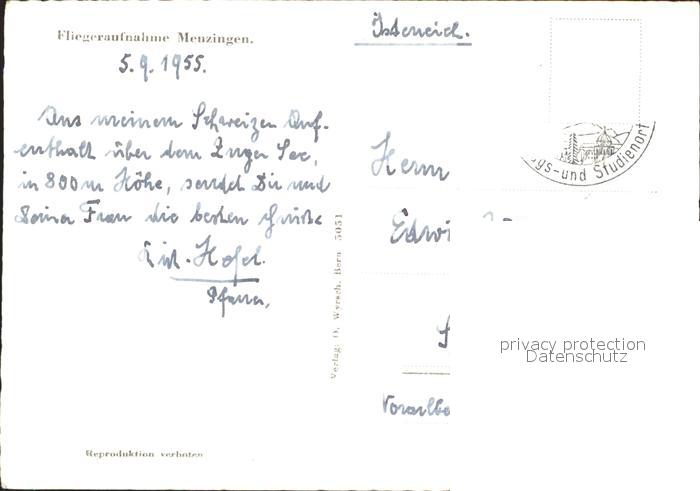 Fliegeraufnahme Menzingen.
5.9.1955.
Aus meinem Schweizer Auf-
enthalt über dem Zuger See,
in 800 m Höhe, sendet Dir und
Deiner Frau die besten Grüße
Hofel.
Pfarrer,
Österreich.
ys- und Studienort
Herrn
Edwi
Vorarlbe
Verlag: O. Wyrsch, Bern 5051
Reproduktion verboten
privacy protection
Datenschutz